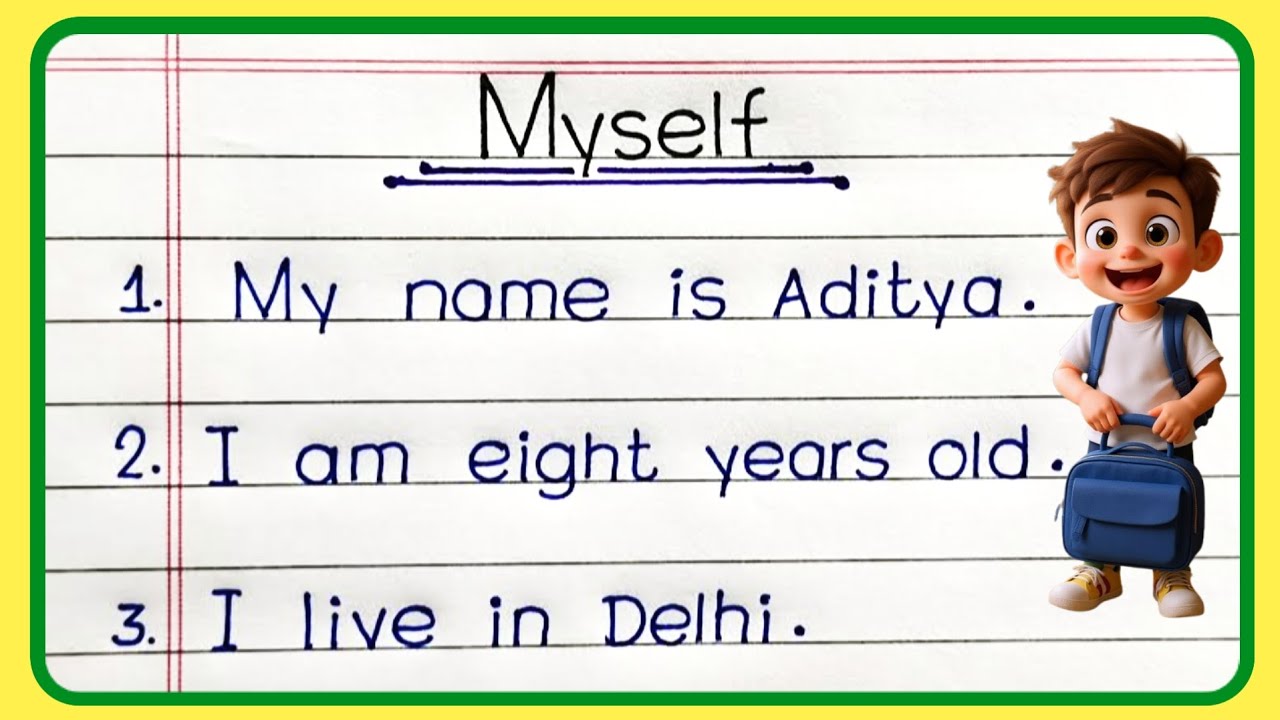 Myself
1. My name is Aditya.
2. I am eight years old.
3. I live in Delhi.